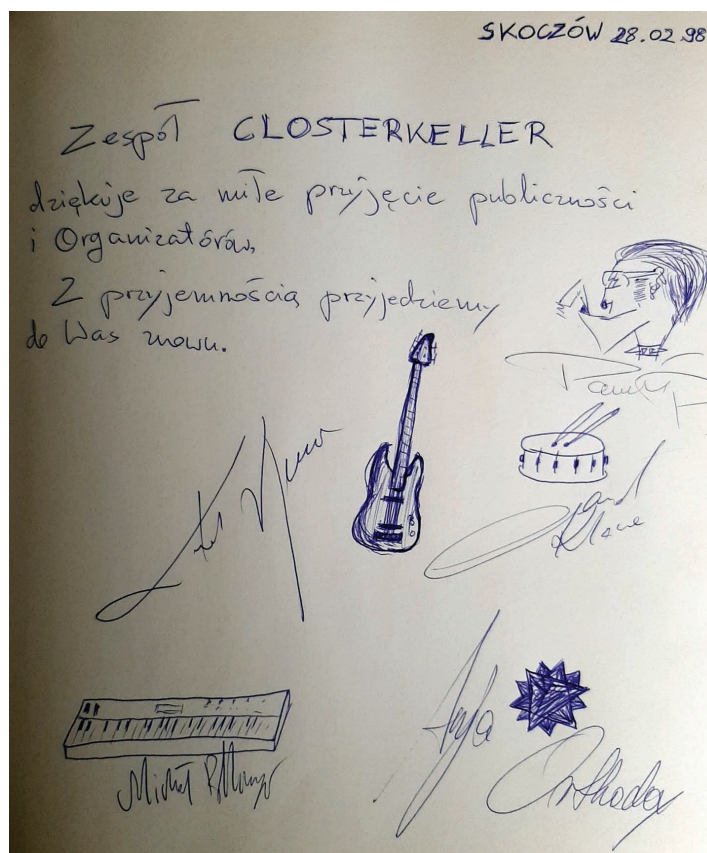 SKOCZÓW 28.02.98
Zespół CLOSTERKELLER
dziękuje za miłe przyjęcie publiczności
i Organizatórów,
Z przyjemnością przyjedziemy
do Was znowu.
Paweł P
Michał
Anja
Orthodox